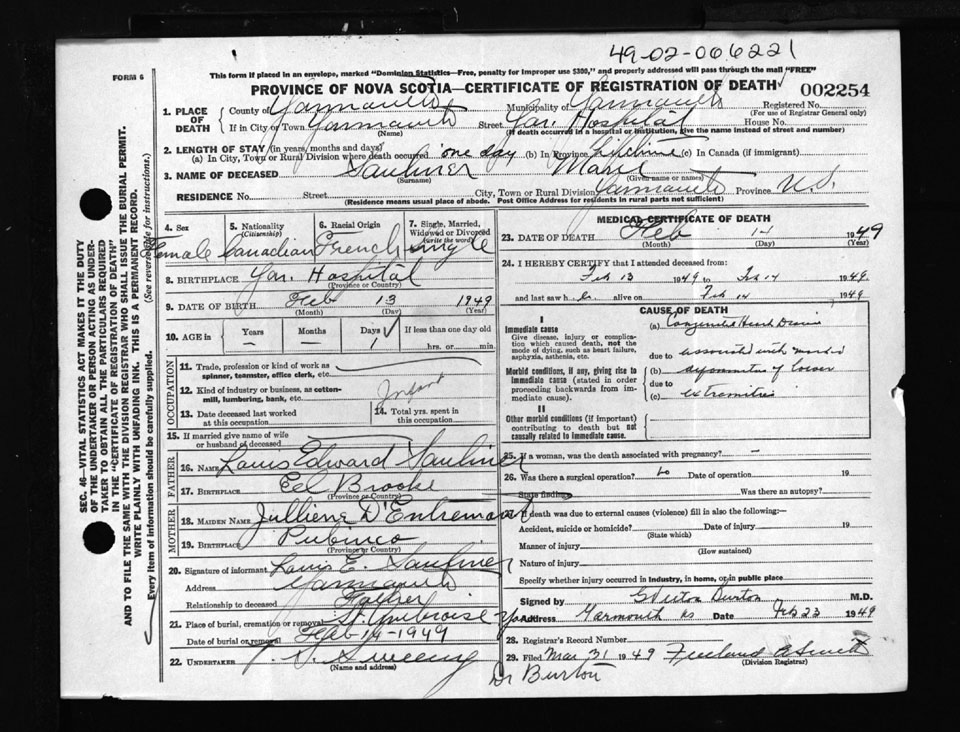 49-02-006221
FORM 6
This form if placed in an envelope, marked "Dominion Statistics—Free, penalty for improper use $300," and properly addressed will pass through the mail "FREE"
PROVINCE OF NOVA SCOTIA—CERTIFICATE OF REGISTRATION OF DEATH 002254
1. PLACE OF DEATH County of Yarmouth Municipality of Yarmouth Registered No.
(For use of Registrar General only)
If in City or Town Yarmouth Street Yar. Hospital House No.
(Name) (If death occurred in a hospital or institution, give the name instead of street and number)
2. LENGTH OF STAY (in years, months and days)
(a) In City, Town or Rural Division where death occurred one day (b) In Province Lifetime (c) In Canada (if immigrant)
3. NAME OF DECEASED Saulnier Marie
(Surname) (Given name or names)
RESIDENCE No. Street City, Town or Rural Division Yarmouth Province N.S.
(Residence means usual place of abode. Post Office Address for residents in rural parts not sufficient)
4. Sex 5. Nationality (Citizenship) 6. Racial Origin 7. Single, Married, Widowed or Divorced (write the word)
Female Canadian French single
8. BIRTHPLACE Yar. Hospital
(Province or Country)
9. DATE OF BIRTH Feb 13 1949
(Month) (Day) (Year)
10. AGE in Years Months Days If less than one day old
— — 1 hrs. or min.
OCCUPATION
11. Trade, profession or kind of work as spinner, teamster, office clerk, etc.
12. Kind of industry or business, as cotton-mill, lumbering, bank, etc. Infant
13. Date deceased last worked at this occupation 14. Total yrs. spent in this occupation
15. If married give name of wife or husband of deceased
FATHER
16. Name Louis Edward Saulnier
17. Birthplace Eel Brooke
(Province or Country)
MOTHER
18. Maiden Name Julliene D'Entremont
19. Birthplace Pubnico
(Province or Country)
20. Signature of informant Louis E. Saulnier
Address Yarmouth
Relationship to deceased Father
21. Place of burial, cremation or removal St. Ambroise Yar
Date of burial or removal Feb-14-1949
22. UNDERTAKER Sweeny
(Name and address)
MEDICAL CERTIFICATE OF DEATH
23. DATE OF DEATH Feb 14 1949
(Month) (Day) (Year)
24. I HEREBY CERTIFY that I attended deceased from:
Feb 13 1949 to Feb 14 1949
and last saw h er alive on Feb 14 1949
CAUSE OF DEATH
I
Immediate cause
Give disease, injury or complication which caused death, not the mode of dying, such as heart failure, asphyxia, asthenia, etc.
(a) Congenital Heart Disease
due to associated with marked
Morbid conditions, if any, giving rise to immediate cause (stated in order proceeding backwards from immediate cause).
(b) deformities of lower
due to
(c) extremities
II
Other morbid conditions (if important) contributing to death but not causally related to immediate cause.
25. If a woman, was the death associated with pregnancy? —
26. Was there a surgical operation? No Date of operation 19
State findings Was there an autopsy?
27. If death was due to external causes (violence) fill in also the following:
Accident, suicide or homicide? Date of injury 19
(State which)
Manner of injury
(How sustained)
Nature of injury
Specify whether injury occurred in industry, in home, or in public place
Signed by Burton M.D.
Address Yarmouth NS Feb 23 1949
28. Registrar's Record Number
29. Filed Mar 31 1949 Freeland A Smith
(Division Registrar)
Dr Burton
SEC. 46—VITAL STATISTICS ACT MAKES IT THE DUTY OF THE UNDERTAKER OR PERSON ACTING AS UNDERTAKER TO OBTAIN ALL THE PARTICULARS REQUIRED IN THE "CERTIFICATE OF REGISTRATION OF DEATH" AND TO FILE THE SAME WITH THE DIVISION REGISTRAR WHO SHALL ISSUE THE BURIAL PERMIT.
WRITE PLAINLY WITH UNFADING INK. THIS IS A PERMANENT RECORD.
Every item of information should be carefully supplied. (See reverse side for instructions.)